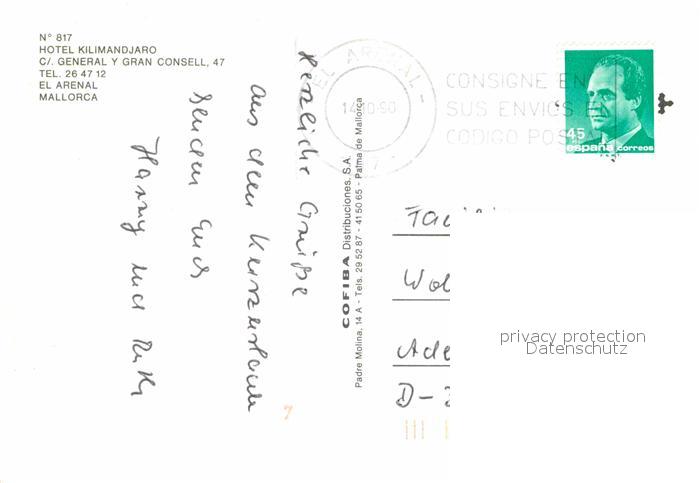 N° 817
HOTEL KILIMANDJARO
C/. GENERAL Y GRAN CONSELL, 47
TEL. 26 47 12
EL ARENAL
MALLORCA
Herzliche Grüße
aus dem Kurzurlaub
senden Euch
Hanny und Ruth
COFIBA Distribuciones, S.A.
Padre Molina, 14 A - Tels. 29 52 87 - 41 50 65 - Palma de Mallorca
EL ARENAL -
10-90
CONSIGNE EN
SUS ENVIOS E
CODIGO POSTA
45
españa correos
Wol
Ade
D-2
privacy protection
Datenschutz